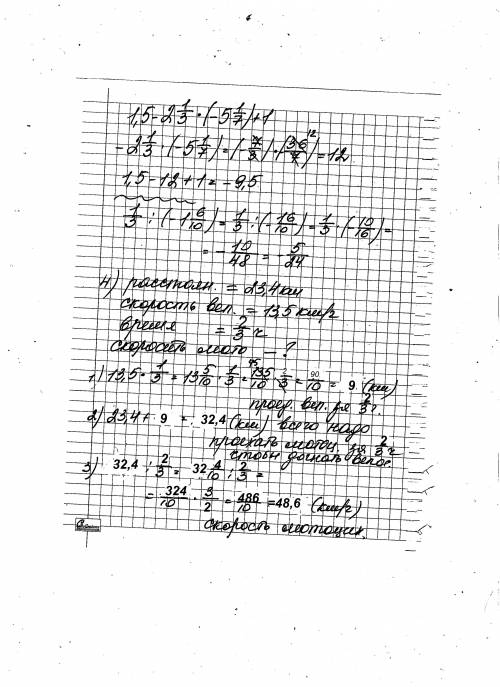 1,5 - 2 1/3 · (-5 1/7) + 1
- 2 1/3 · (-5 1/7) = (- 7/3) · (36/7) 12 = 12
1,5 - 12 + 1 = - 9,5
1/3 : (-1 6/10) = 1/3 : (- 16/10) = 1/3 · (- 10/16) =
= - 10/48 = - 5/24
4) расстоян. = 23,4 км
скорость вел. = 13,5 км/г
время = 2/3 г
скорость мото — ?
1) 13,5 · 1/3 = 13 5/10 · 1/3 = 135/10 45 · 2/3 = 90/10 = 9 (км)
проед. вел. за 2/3 г.
2) 23,4 + 9 = 32,4 (км) всего надо
проехать мотоц. за 2/3 г
чтобы догнать велос.
3) 32,4 : 2/3 = 32 4/10 : 2/3 =
= 324/10 · 3/2 = 486/10 = 48,6 (км/г)
скорость мотоцик.